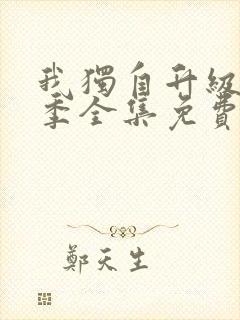 我獨自升級
季全集免費
鄭天生